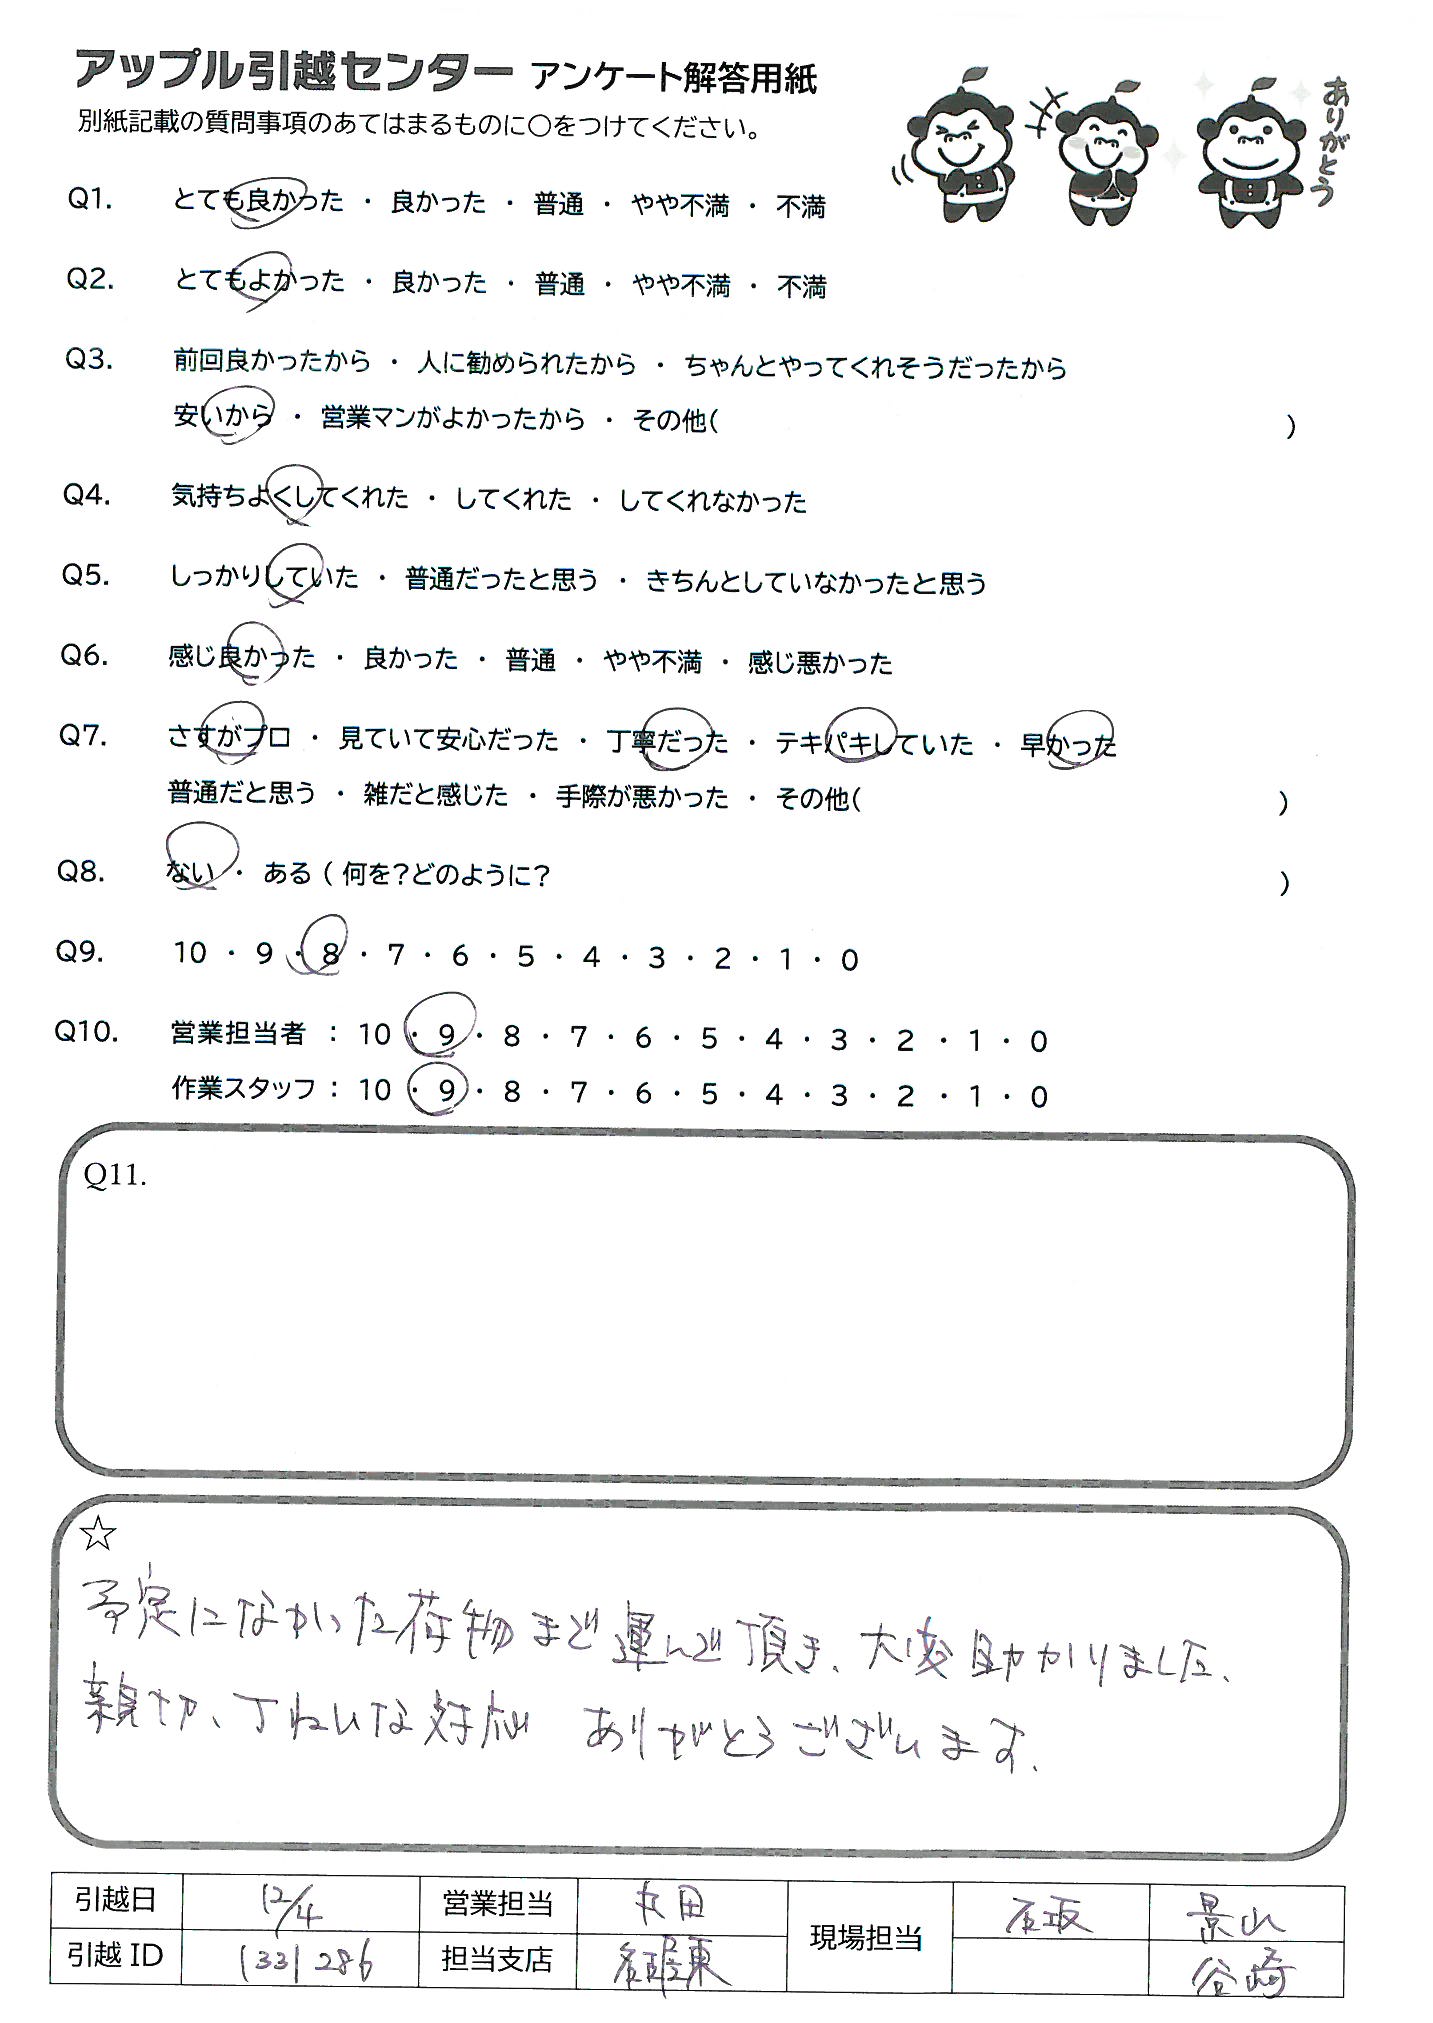 アップル引越センター アンケート解答用紙
別紙記載の質問事項のあてはまるものに○をつけてください。
ありがとう
Q1. とても良かった ・ 良かった ・ 普通 ・ やや不満 ・ 不満
Q2. とてもよかった ・ 良かった ・ 普通 ・ やや不満 ・ 不満
Q3. 前回良かったから ・ 人に勧められたから ・ ちゃんとやってくれそうだったから
安いから ・ 営業マンがよかったから ・ その他( )
Q4. 気持ちよくしてくれた ・ してくれた ・ してくれなかった
Q5. しっかりしていた ・ 普通だったと思う ・ きちんとしていなかったと思う
Q6. 感じ良かった ・ 良かった ・ 普通 ・ やや不満 ・ 感じ悪かった
Q7. さすがプロ ・ 見ていて安心だった ・ 丁寧だった ・ テキパキしていた ・ 早かった
普通だと思う ・ 雑だと感じた ・ 手際が悪かった ・ その他( )
Q8. ない ・ ある ( 何を?どのように? )
Q9. 10 ・ 9 ・ 8 ・ 7 ・ 6 ・ 5 ・ 4 ・ 3 ・ 2 ・ 1 ・ 0
Q10. 営業担当者 : 10 ・ 9 ・ 8 ・ 7 ・ 6 ・ 5 ・ 4 ・ 3 ・ 2 ・ 1 ・ 0
作業スタッフ : 10 ・ 9 ・ 8 ・ 7 ・ 6 ・ 5 ・ 4 ・ 3 ・ 2 ・ 1 ・ 0
Q11.
☆
予定になかった荷物まで運んで頂き、大変助かりました。
親切、丁ねいな対応 ありがとうございます。
引越日 12/4 営業担当 丸田 現場担当 石坂 景山
引越ID 1331286 担当支店 名古屋東 谷崎